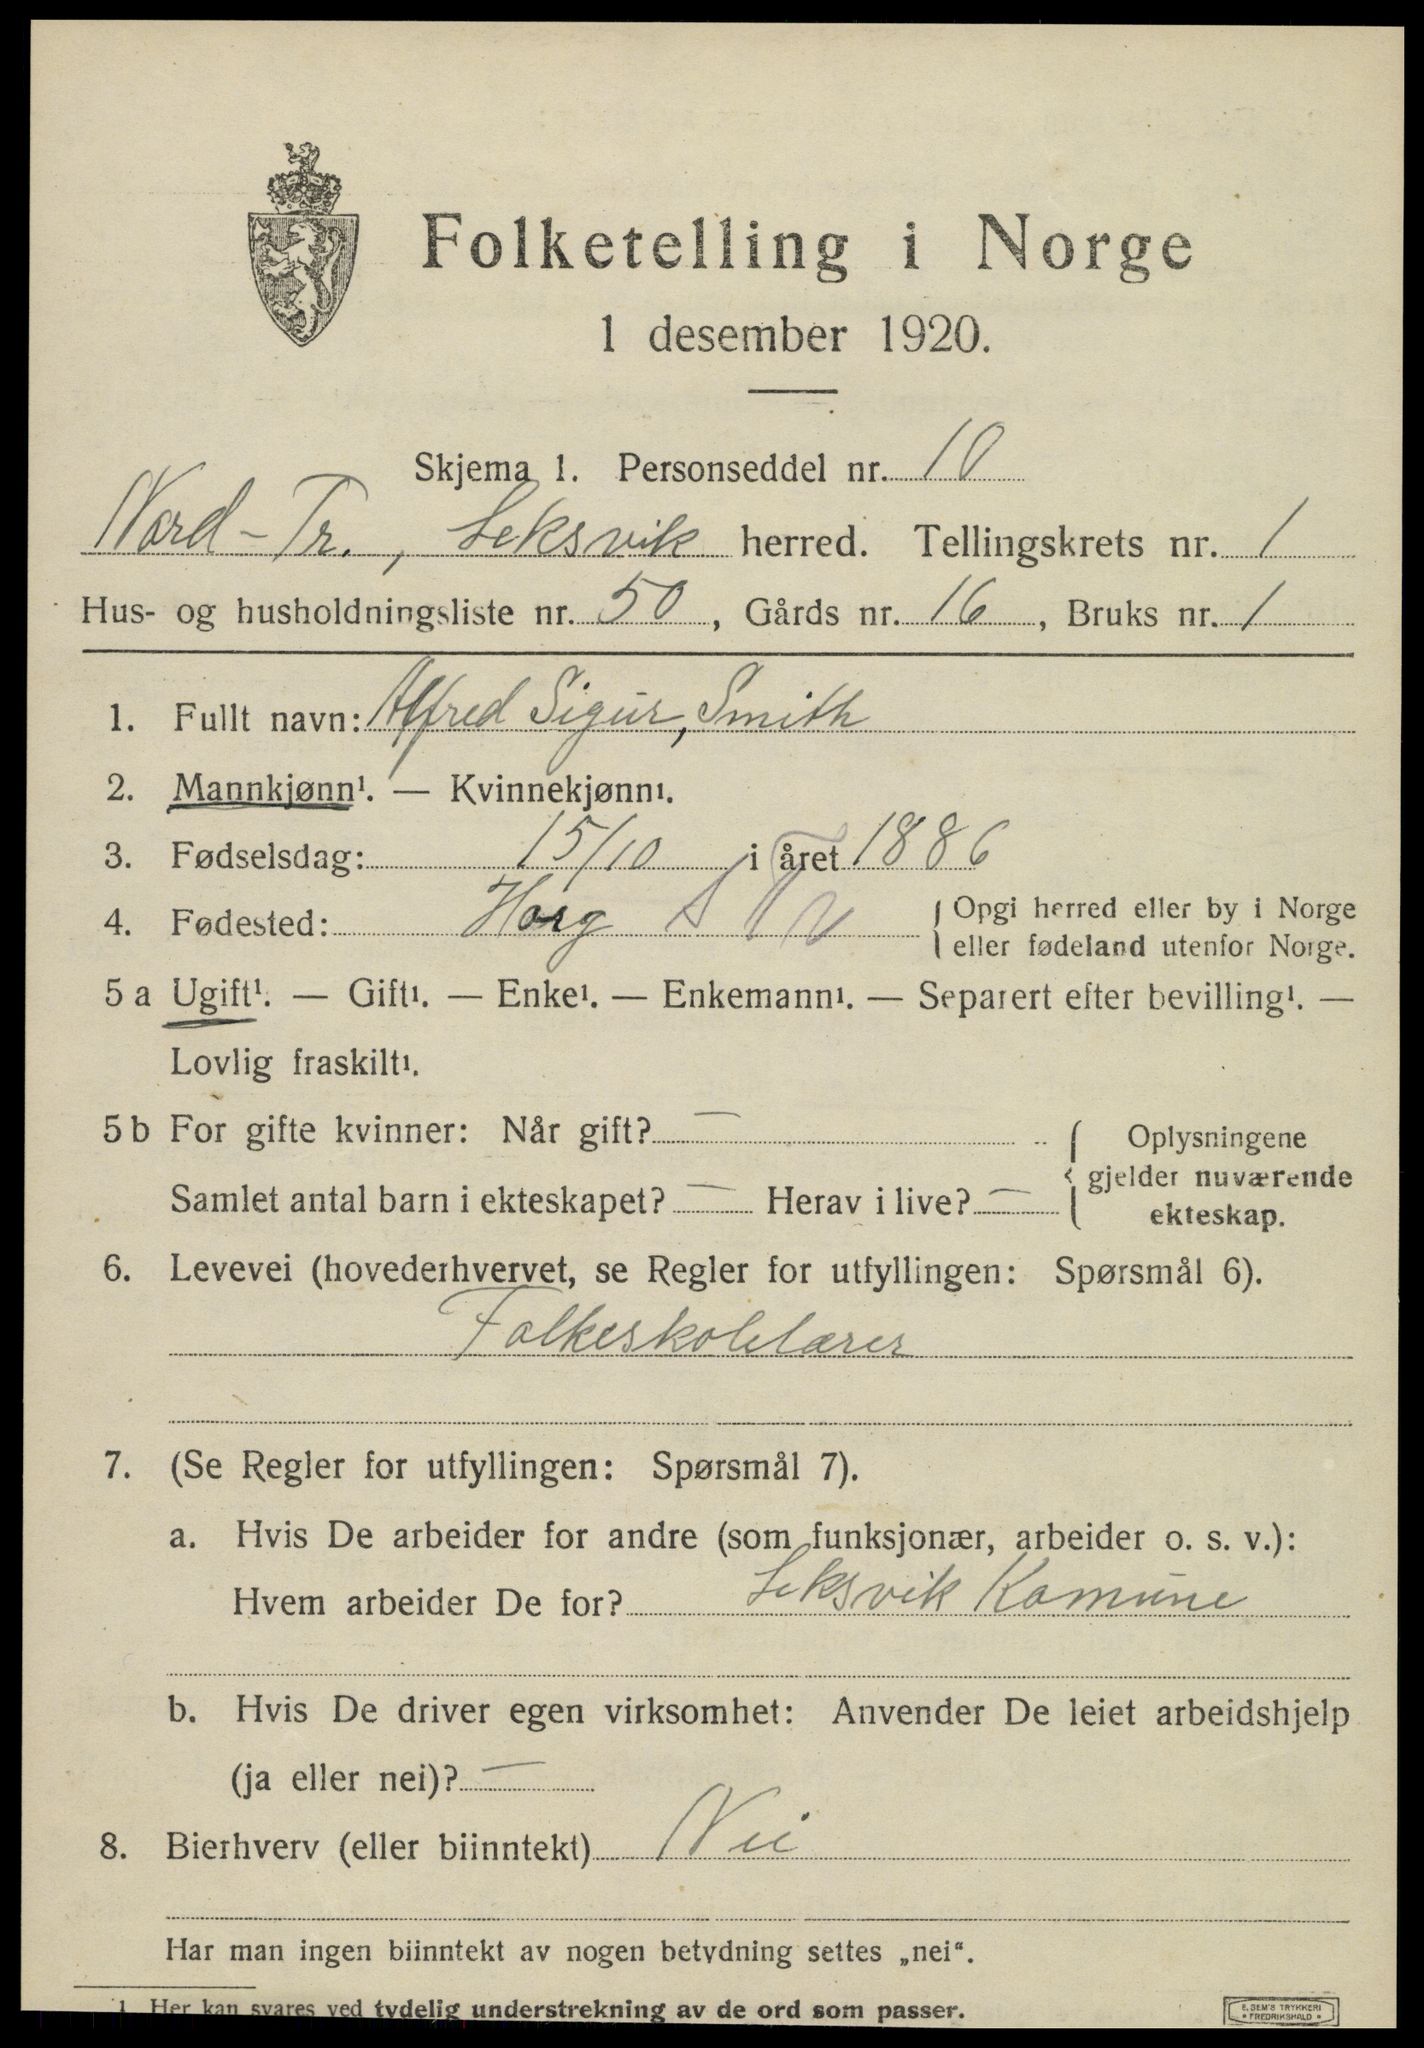 Folketelling i Norge
1 desember 1920.
Skjema 1. Personseddel nr. 10
Nord-Tr., Leksvik herred. Tellingskrets nr. 1
Hus- og husholdningsliste nr. 50, Gårds nr. 16, Bruks nr. 1
1. Fullt navn: Alfred Sigur, Smith
2. Mannkjønn¹. — Kvinnekjønn¹.
3. Fødselsdag: 15/10 i året 1886
4. Fødested: Horg S Tr
{ Opgi herred eller by i Norge
eller fødeland utenfor Norge.
5 a Ugift¹. — Gift¹. — Enke¹. — Enkemann¹. — Separert efter bevilling¹. —
Lovlig fraskilt¹.
5 b For gifte kvinner: Når gift? —
Samlet antal barn i ekteskapet? — Herav i live? —
{ Oplysningene
gjelder nuværende
ekteskap.
6. Levevei (hovederhvervet, se Regler for utfyllingen: Spørsmål 6).
Folkeskolelærer
7. (Se Regler for utfyllingen: Spørsmål 7).
a. Hvis De arbeider for andre (som funksjonær, arbeider o. s. v.):
Hvem arbeider De for? Leksvik Komune
b. Hvis De driver egen virksomhet: Anvender De leiet arbeidshjelp
(ja eller nei)? —
8. Bierhverv (eller biinntekt) Nei
Har man ingen biinntekt av nogen betydning settes „nei“.
1. Her kan svares ved tydelig understrekning av de ord som passer.
E. SEM'S TRYKKERI
• FREDRIKSHALD •